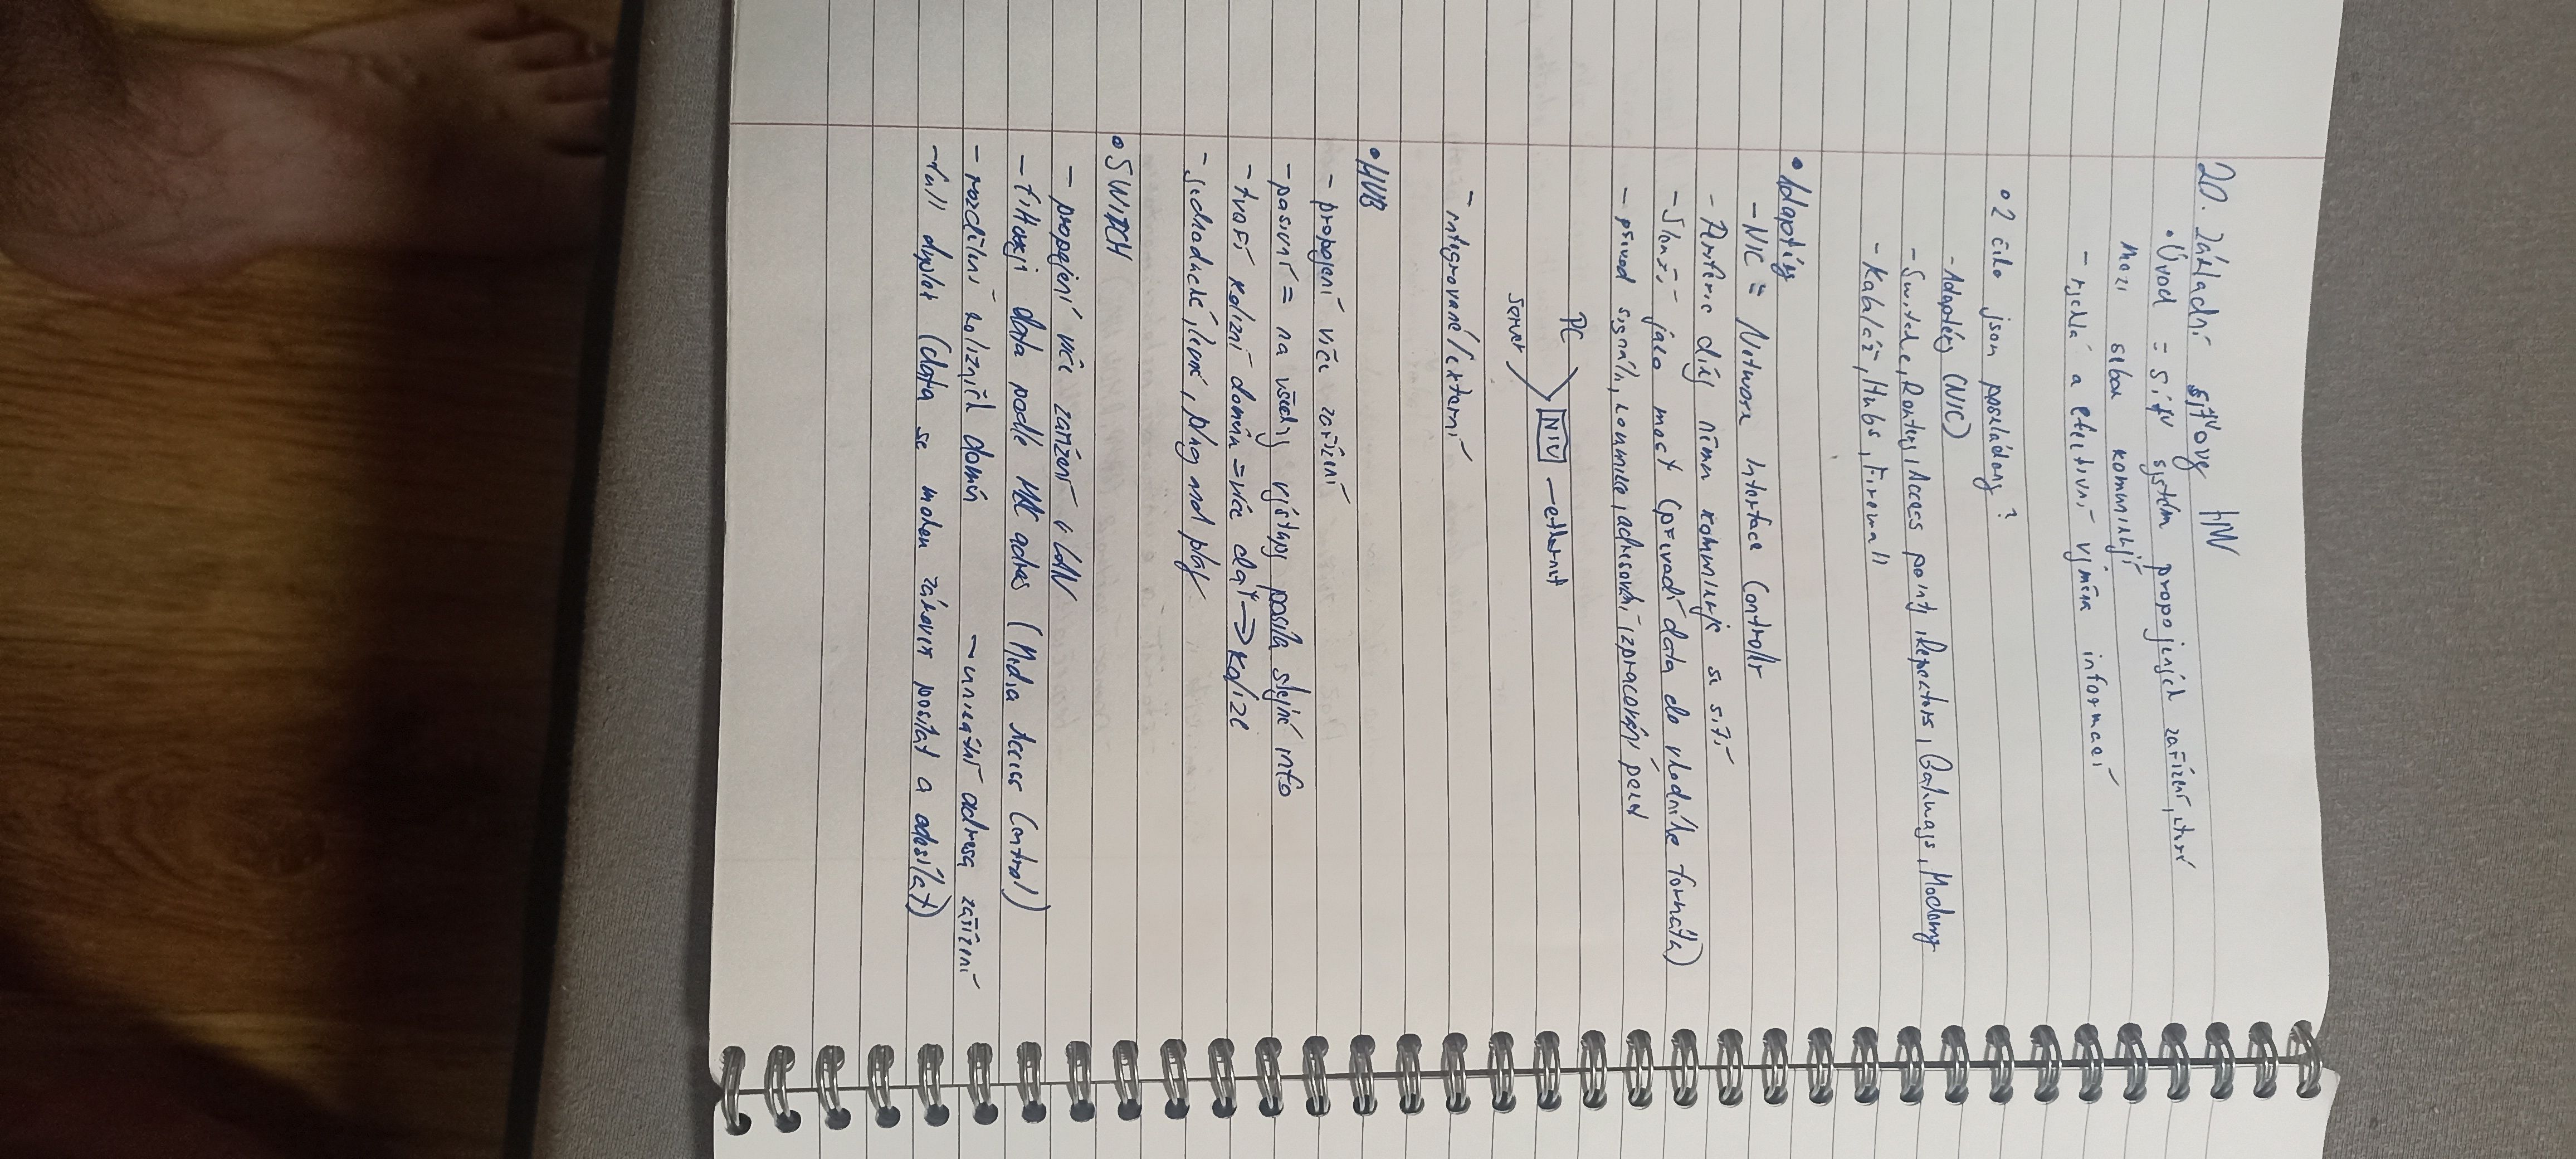 20. Základní síťový HW
• Úvod = síť systém propojených zařízení, které
mezi sebou komunikují
- rychlá a efektivní výměna informací
• Z čeho jsou poskládány?
- Adaptéry (NIC)
- Switche, Routery, Access pointy, Repeaters, Gateways, Modemy
- Kabeláž, Hubs, Firewall
• Adaptéry
- NIC = Network Interface Controller
- Periferie díky němu komunikuje se sítí
- Slouží jako most (převádí data do vhodného formátu)
- převod signálu, komunikace, adresování, zpracování paket
PC
NIC - ethernet
server
- integrované/externí
• HUB
- propojení více zařízení
- pasivní = na všechny výstupy posílá stejné info
- tvoří kolizní doménu = více dat → Kolize
- jednoduché, levné, plug and play
• SWITCH
- propojení více zařízení v LAN
- filtrují data podle MAC adres (Media Access Control)
- rozdělení kolizních domén - unikátní adresa zařízení
- full duplex (data se mohou zároveň posílat a odesílat)